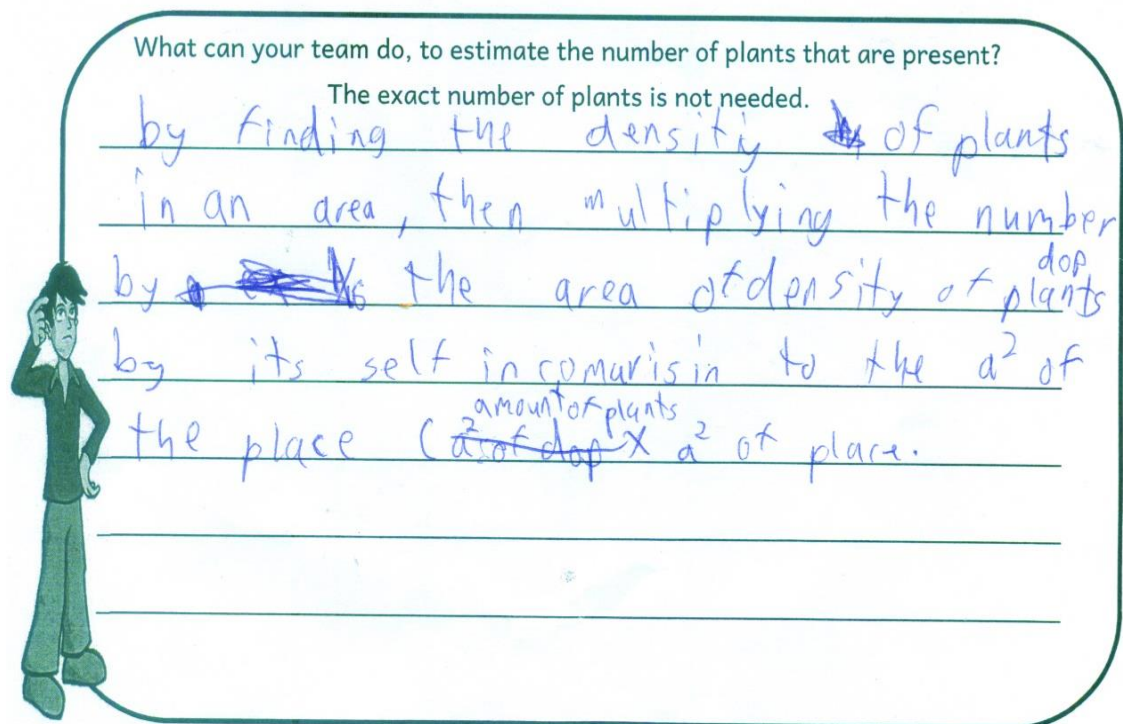 What can your team do, to estimate the number of plants that are present?
The exact number of plants is not needed.
by finding the densitiy of plants
in an area, then multiplying the number
dop
by the area of density of plants
by its self in comparisin to the a² of
amount of plants
the place ( a² of dop X a² of place.